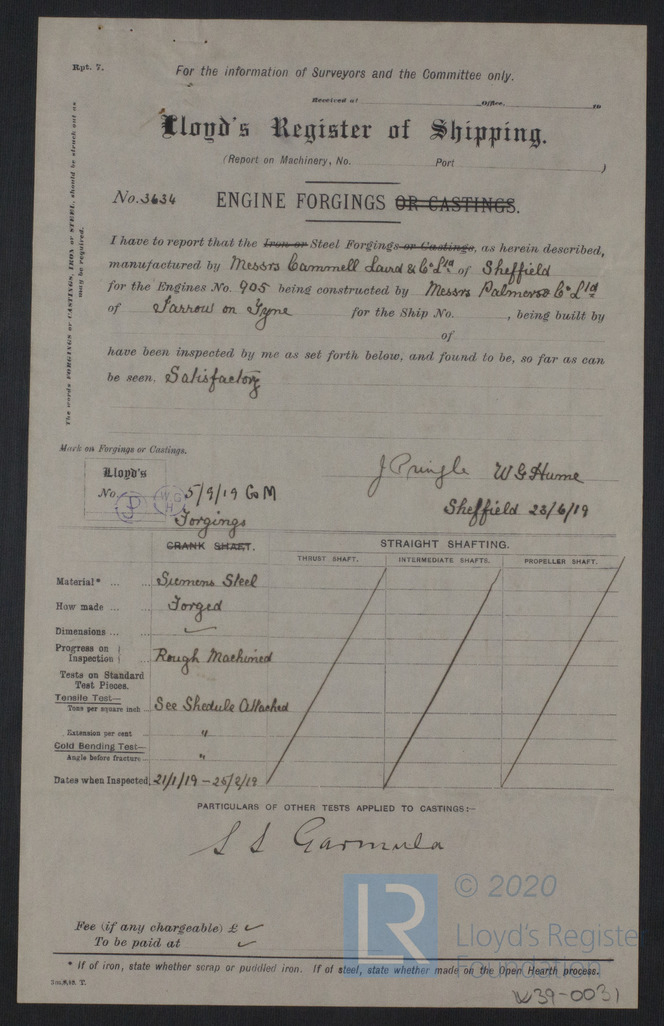 Rpt. 7.
For the information of Surveyors and the Committee only.
Received at Office, to
Lloyd's Register of Shipping.
(Report on Machinery, No. Port )
No. 3634 ENGINE FORGINGS OR CASTINGS.
The words FORGINGS or CASTINGS, IRON or STEEL, should be struck out as
may be required.
I have to report that the Iron or Steel Forgings or Castings, as herein described,
manufactured by Messrs Cammell Laird & Co Ltd of Sheffield
for the Engines No. 905 being constructed by Messrs Palmers & Co Ltd
of Jarrow on Tyne for the Ship No. , being built by
of
have been inspected by me as set forth below, and found to be, so far as can
be seen. Satisfactory
Mark on Forgings or Castings.
Lloyd's
J Pringle W G Hume
No. JP W.G H. 5/9/19 G M
Sheffield 23/6/19
Forgings
CRANK SHAFT.
STRAIGHT SHAFTING.
THRUST SHAFT. INTERMEDIATE SHAFTS. PROPELLER SHAFT.
Material* ... ... Siemens Steel
How made ... ... Forged
Dimensions ... ...
Progress on
Inspection Rough Machined
Tests on Standard
Test Pieces.
Tensile Test—
Tons per square inch ... See Shedule Attached
Extension per cent ... "
Cold Bending Test—
Angle before fracture ... "
Dates when Inspected 21/1/19 - 25/2/19
PARTICULARS OF OTHER TESTS APPLIED TO CASTINGS:—
S S Garmula
LR
© 2020
Lloyd's Register
Foundation
Fee (if any chargeable) £
To be paid at
* If of iron, state whether scrap or puddled iron. If of steel, state whether made on the Open Hearth process.
W39-0031